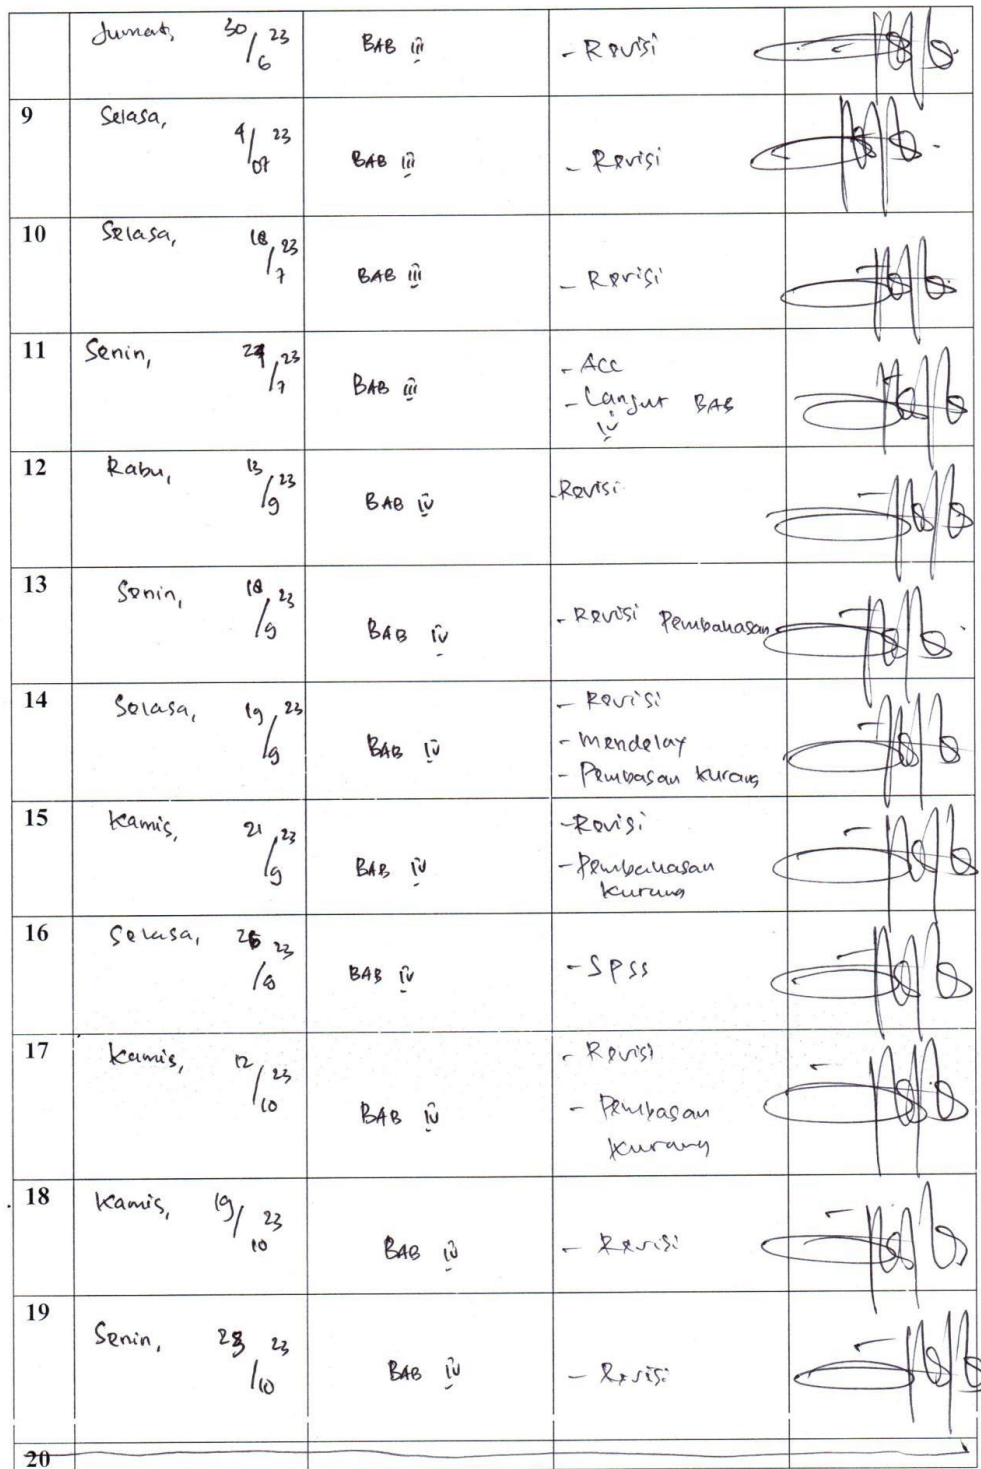 Jumat, 30/6 23 BAB III - Revisi
9 Selasa, 4/07 23 BAB III - Revisi
10 Selasa, 18/7 23 BAB III - Revisi
11 Senin, 24/7 23 BAB III - ACC
- Lanjut BAB
IV
12 Rabu, 13/9 23 BAB IV - Revisi
13 Senin, 18/9 23 BAB IV - Revisi Pembahasan
14 Selasa, 19/9 23 BAB IV - Revisi
- Mendelay
- Pembasan kurang
15 Kamis, 21/9 23 BAB IV - Revisi
- Pembahasan
kurang
16 Selasa, 26/9 23 BAB IV - SPSS
17 Kamis, 12/10 23 BAB IV - Revisi
- Pembasan
kurang
18 Kamis, 19/10 23 BAB IV - Revisi
19 Senin, 23/10 23 BAB IV - Revisi
20